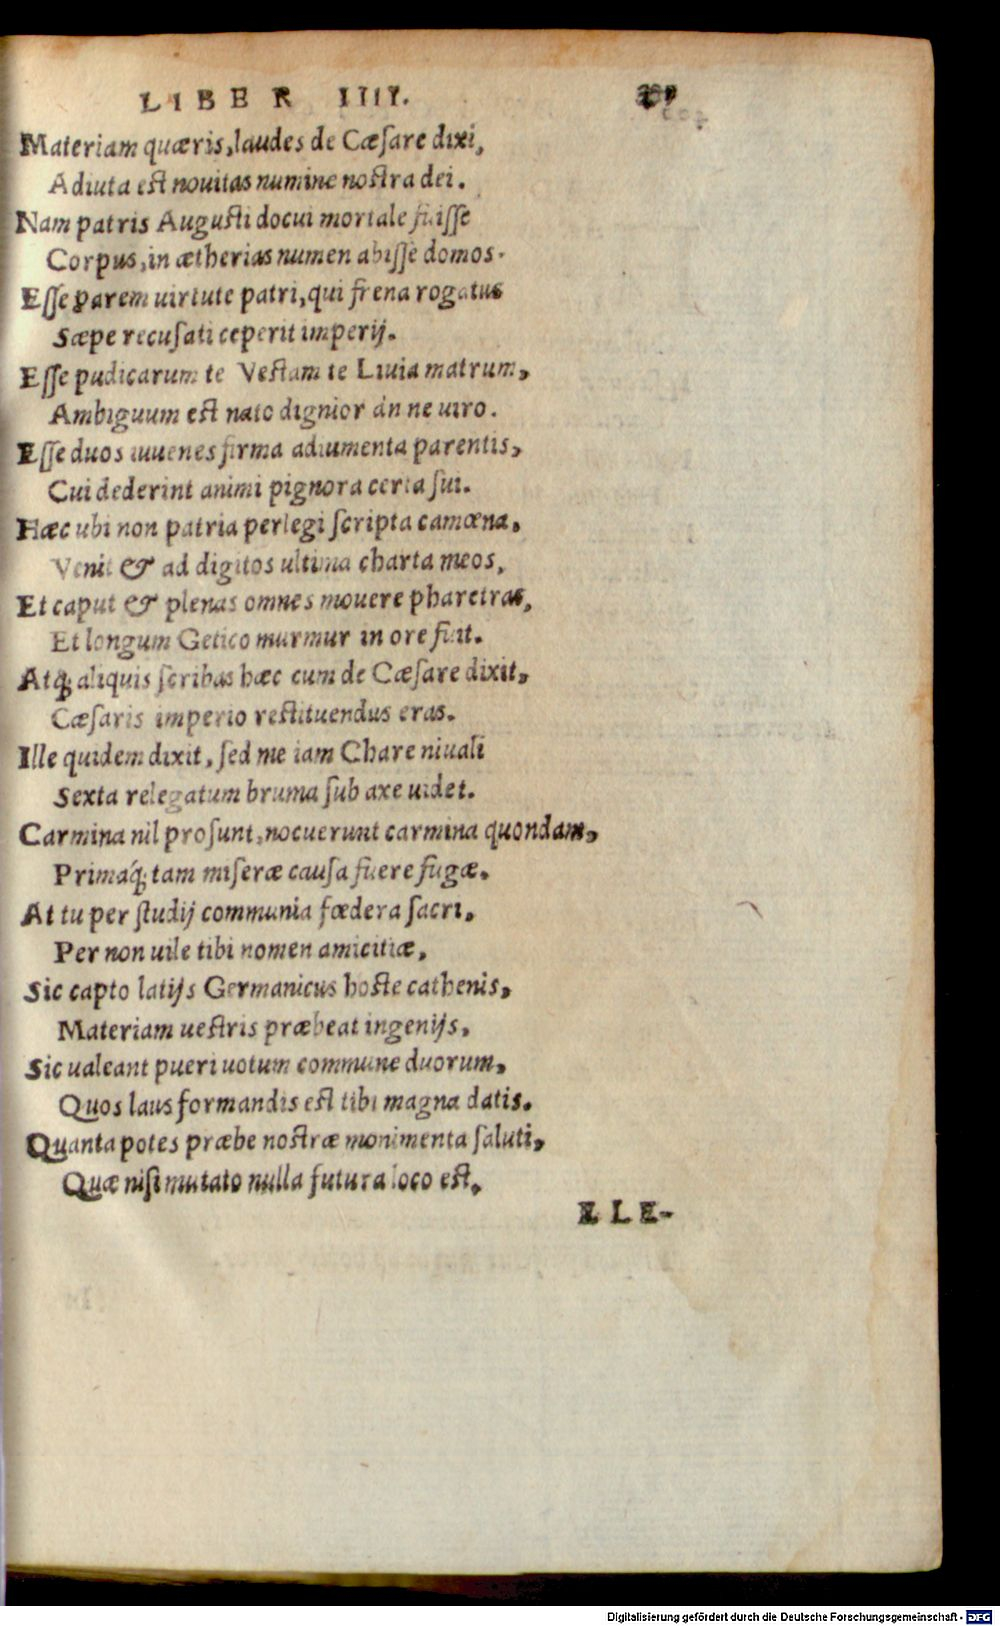 LIBER IIII.
Materiam quæris, laudes de Cæsare dixi,
Adiuta est nouitas numine nostra dei.
Nam patris Augusti docui mortale fuisse
Corpus, in ætherias numen abisse domos.
Esse parem uirtute patri, qui frena rogatus
Sæpe recusati ceperit imperij.
Esse pudicarum te Vestam te Liuia matrum,
Ambiguum est nato dignior án ne uiro.
Esse duos iuuenes firma adiumenta parentis,
Cui dederint animi pignora certa sui.
Hæc ubi non patria perlegi scripta camœna,
Venit & ad digitos ultima charta meos,
Et caput & plenas omnes mouere pharetras,
Et longum Getico murmur in ore fuit.
Atq; aliquis scribas hæc cum de Cæsare dixit,
Cæsaris imperio restituendus eras.
Ille quidem dixit, sed me iam Chare niuali
Sexta relegatum bruma sub axe uidet.
Carmina nil prosunt, nocuerunt carmina quondam,
Primáq; tam miseræ causa fuere fugæ.
At tu per studij communia fœdera sacri,
Per non uile tibi nomen amicitiæ,
Sic capto latijs Germanicus hoste cathenis,
Materiam uestris præbeat ingenijs,
Sic ualeant pueri uotum commune duorum,
Quos laus formandis est tibi magna datis.
Quanta potes præbe nostræ monimenta saluti,
Quæ nisi mutato nulla futura loco est.
ELE-
Digitalisierung gefördert durch die Deutsche Forschungsgemeinschaft - DFG